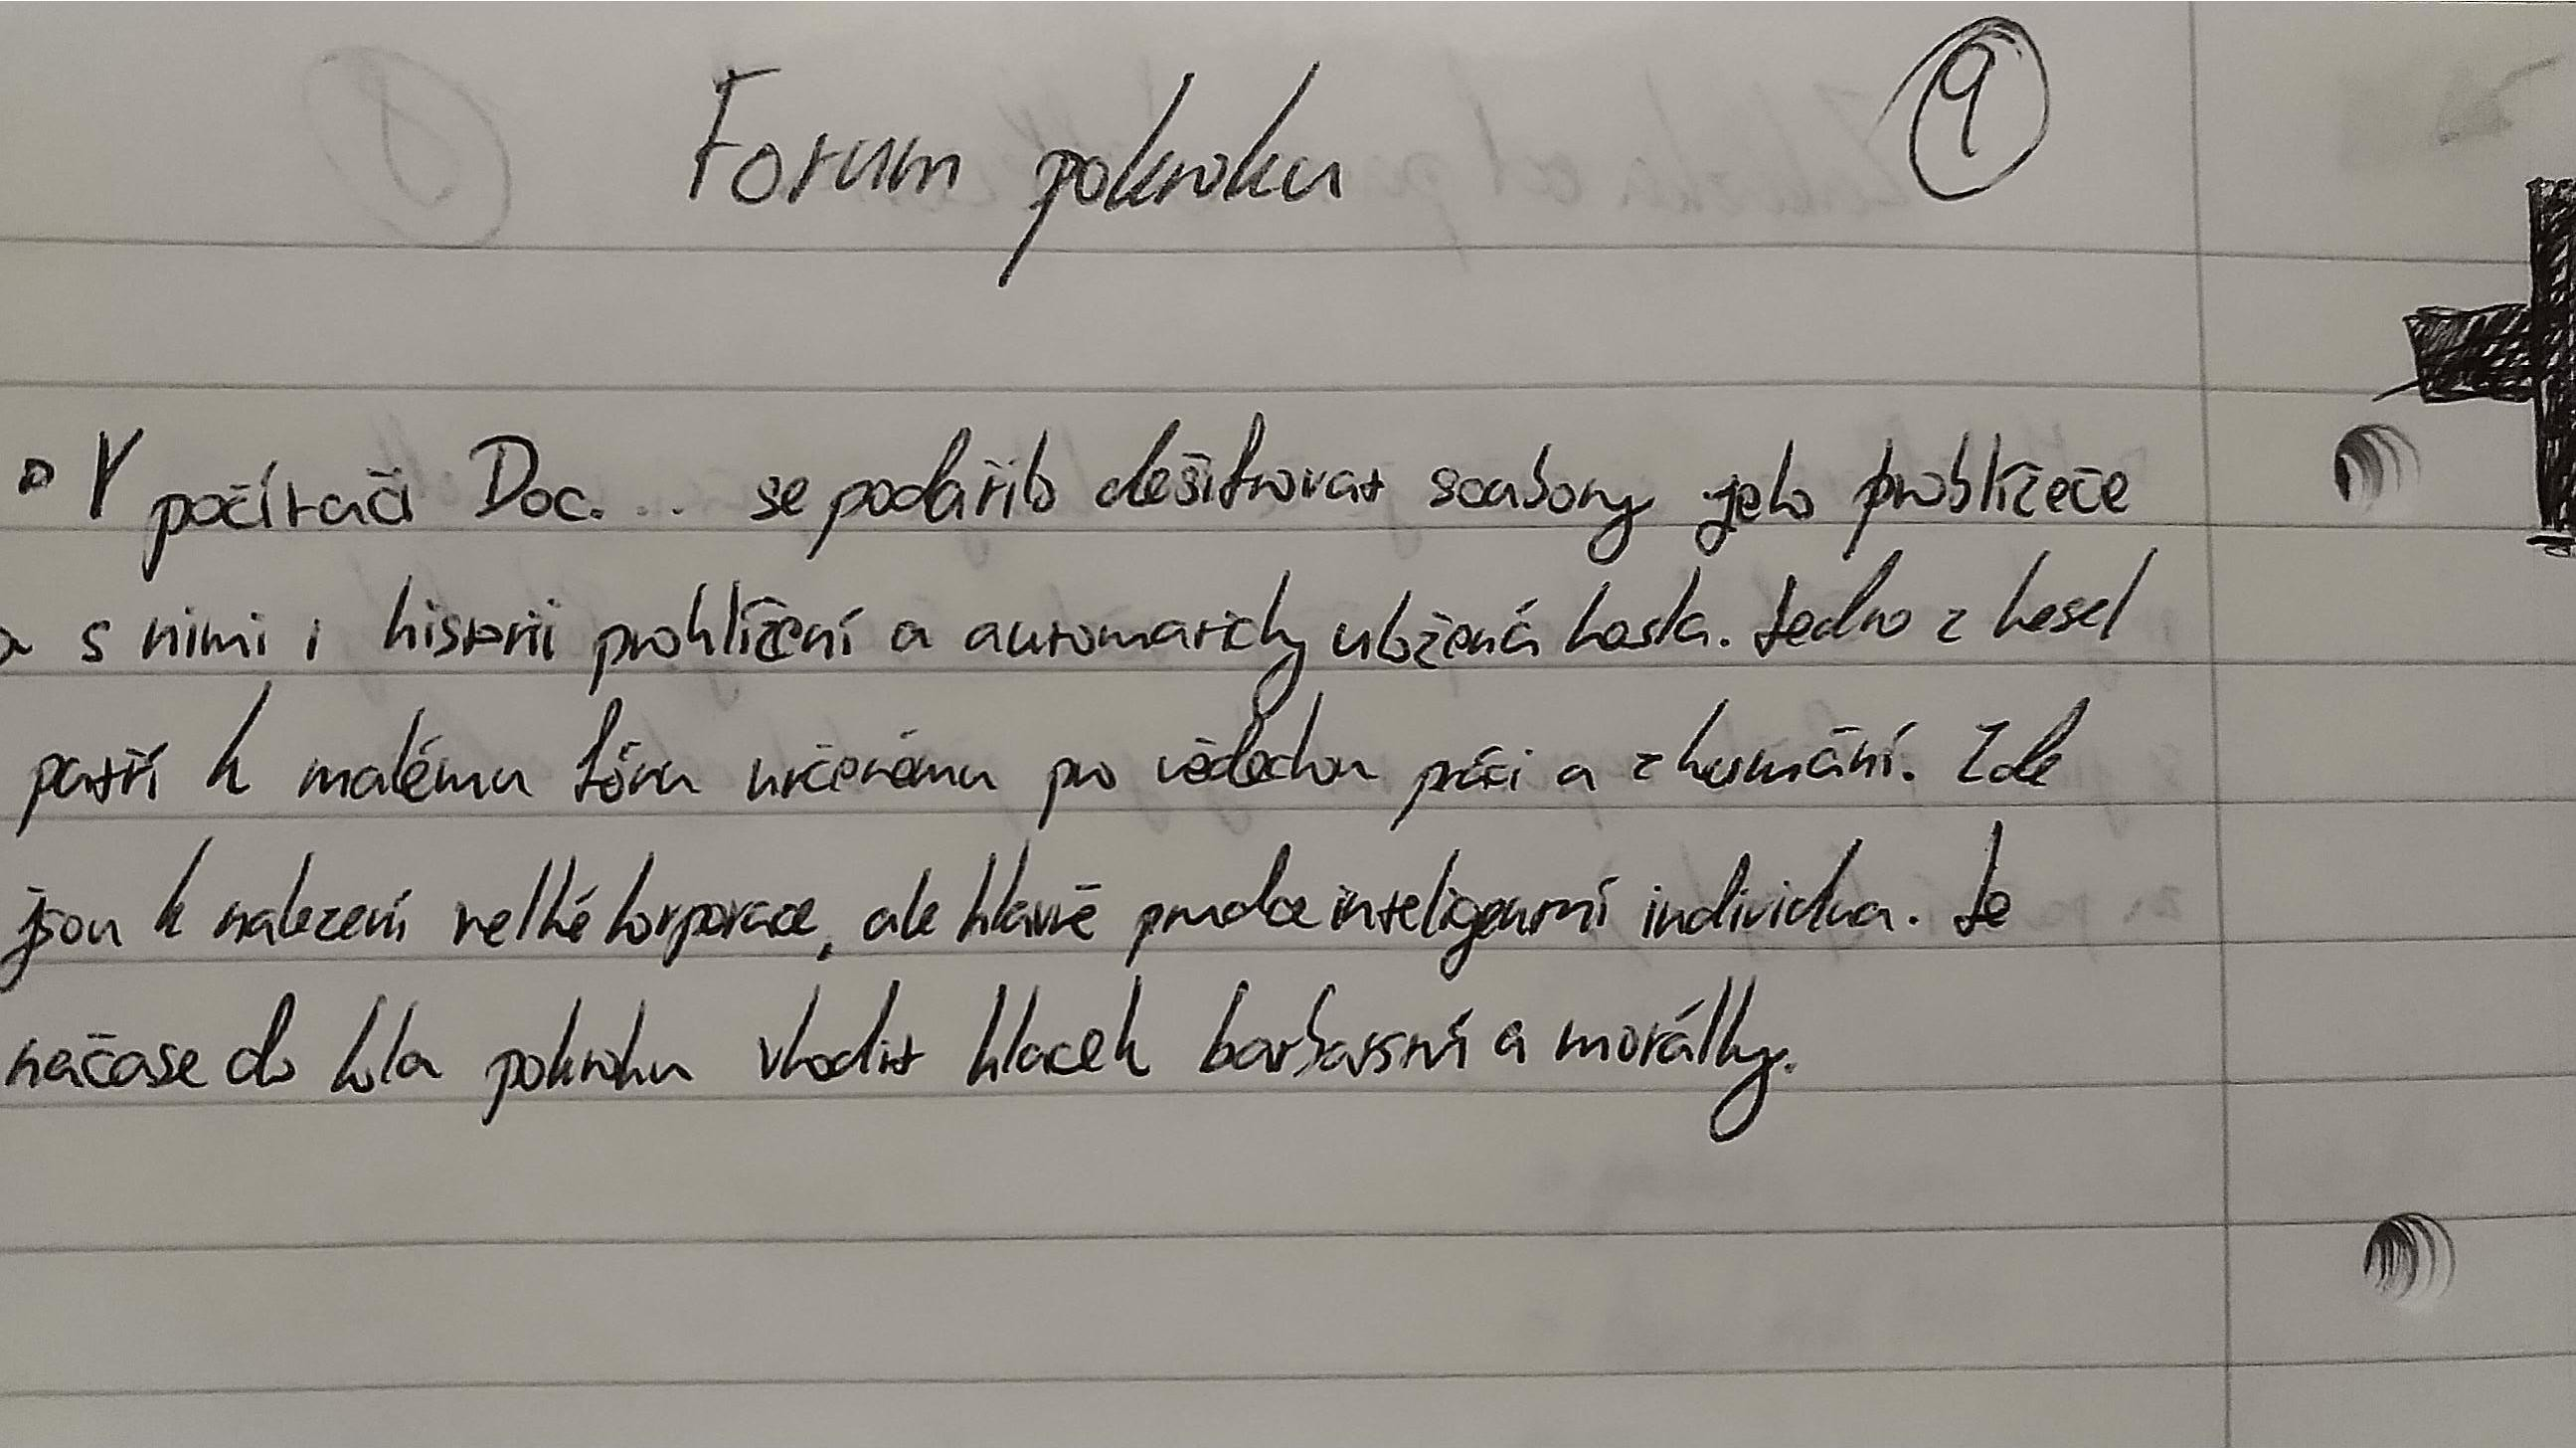 Forum pokroku
9
V počítači Doc. ... se podařilo dešifrovat soubory jeho prohlížeče
a s nimi i historii prohlížení a automaticky uložená hesla. Jedno z hesel
patří k malému fóru určenému pro vědeckou práci a zkoumání. Zde
jsou k nalezení velké korporace, ale hlavně prudce inteligentní individua. Je
načase do kola pokroku vhodit klacek barbarství a morálky.